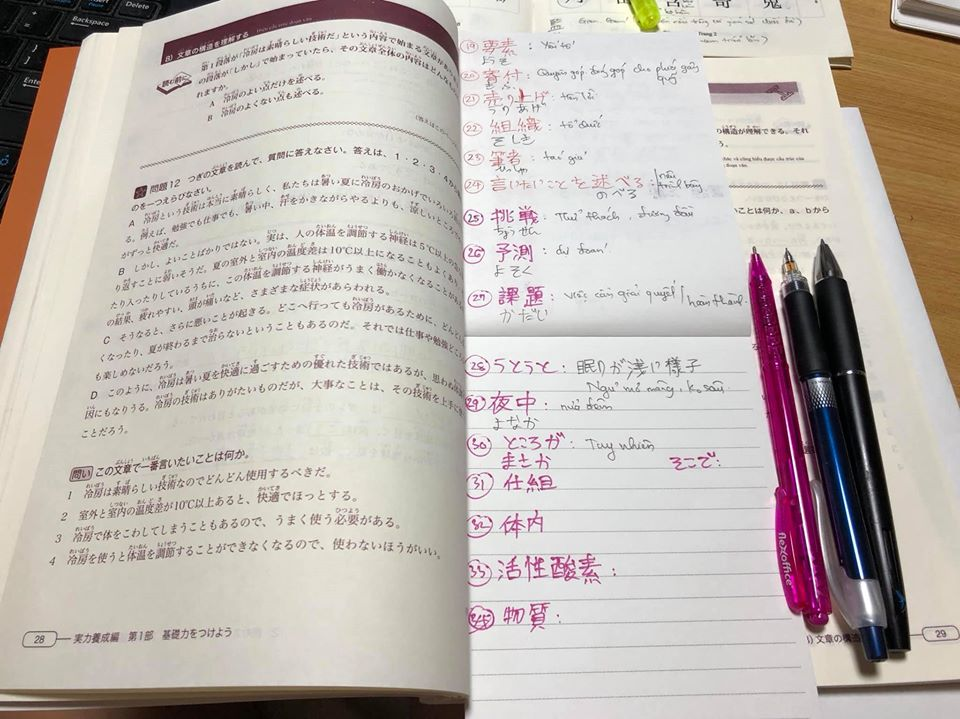 B) 文章の構造を理解する
第1段落が「冷房は素晴らしい技術だ」という内容で始まる文章があり
の段落が「しかし」で始まっていたら、その文章全体の内容はどんな
れますか。
A 冷房のよい点だけを述べる。
B 冷房のよくない点も述べる。
問題12 つぎの文章を読んで、質問に答えなさい。答えは、1・2・3・4から
のを一つえらびなさい。
A 冷房という技術は本当に素晴らしく、私たちは暑い夏に冷房のおかげでいろいろ
る。例えば、勉強でも仕事でも、暑い中、汗をかきながらやるよりも、涼しいところ
がずっと快適だ。
B しかし、よいことばかりではない。実は、人の体温を調節する神経は5℃以上の
り返すことに弱いそうだ。夏の室外と室内の温度差は10℃以上になることもよくあり、
たり入ったりしているうちに、この体温を調節する神経がうまく働かなくなることが
の結果、疲れやすい、頭が痛いなど、さまざまな症状があらわれる。
C そうなると、さらに悪いことが起きる。どこへ行っても冷房があるために、どんどん
くなったり、夏が終わるまで治らないということもあるのだ。それでは仕事や勉強どこ
も楽しめないだろう。
D このように、冷房は暑い夏を快適に過ごすための優れた技術ではあるが、思わぬ
因にもなりうる。冷房の技術はありがたいものだが、大事なことは、その技術を上手に
ことだろう。
問い この文章で一番言いたいことは何か。
1 冷房は素晴らしい技術なのでどんどん使用するべきだ。
2 室外と室内の温度差が10℃以上あると、快適でほっとする。
3 冷房で体をこわしてしまうこともあるので、うまく使う必要がある。
4 冷房を使うと体温を調節することができなくなるので、使わないほうがいい。
28 実力養成編 第1部 基礎力をつけよう
⑲ 要素: Yếu tố
ようそ
⑳ 寄付: Quyên góp
きふ
㉑ 売り上げ:
うりあげ
㉒ 組織: tổ chức
そしき
㉓ 筆者: tác giả
ひっしゃ
㉔ 言いたいことを述べる:
のべる
㉕ 挑戦: Thử thách
ちょうせん
㉖ 予測: dự đoán
よそく
㉗ 課題: việc cần giải quyết / hoàn thành
かだい
㉘ うとうと: 眠りが浅い様子
Ngủ mơ màng, k sâu
㉙ 夜中: nửa đêm
よなか
㉚ ところが: Tuy nhiên
まさか そこで:
㉛ 仕組
㉜ 体内
㉝ 活性酸素:
物質:
flexoffice
の構造が理解できる。それ
ことは何か、a、bから
文章の構造
29
Backspace
Enter